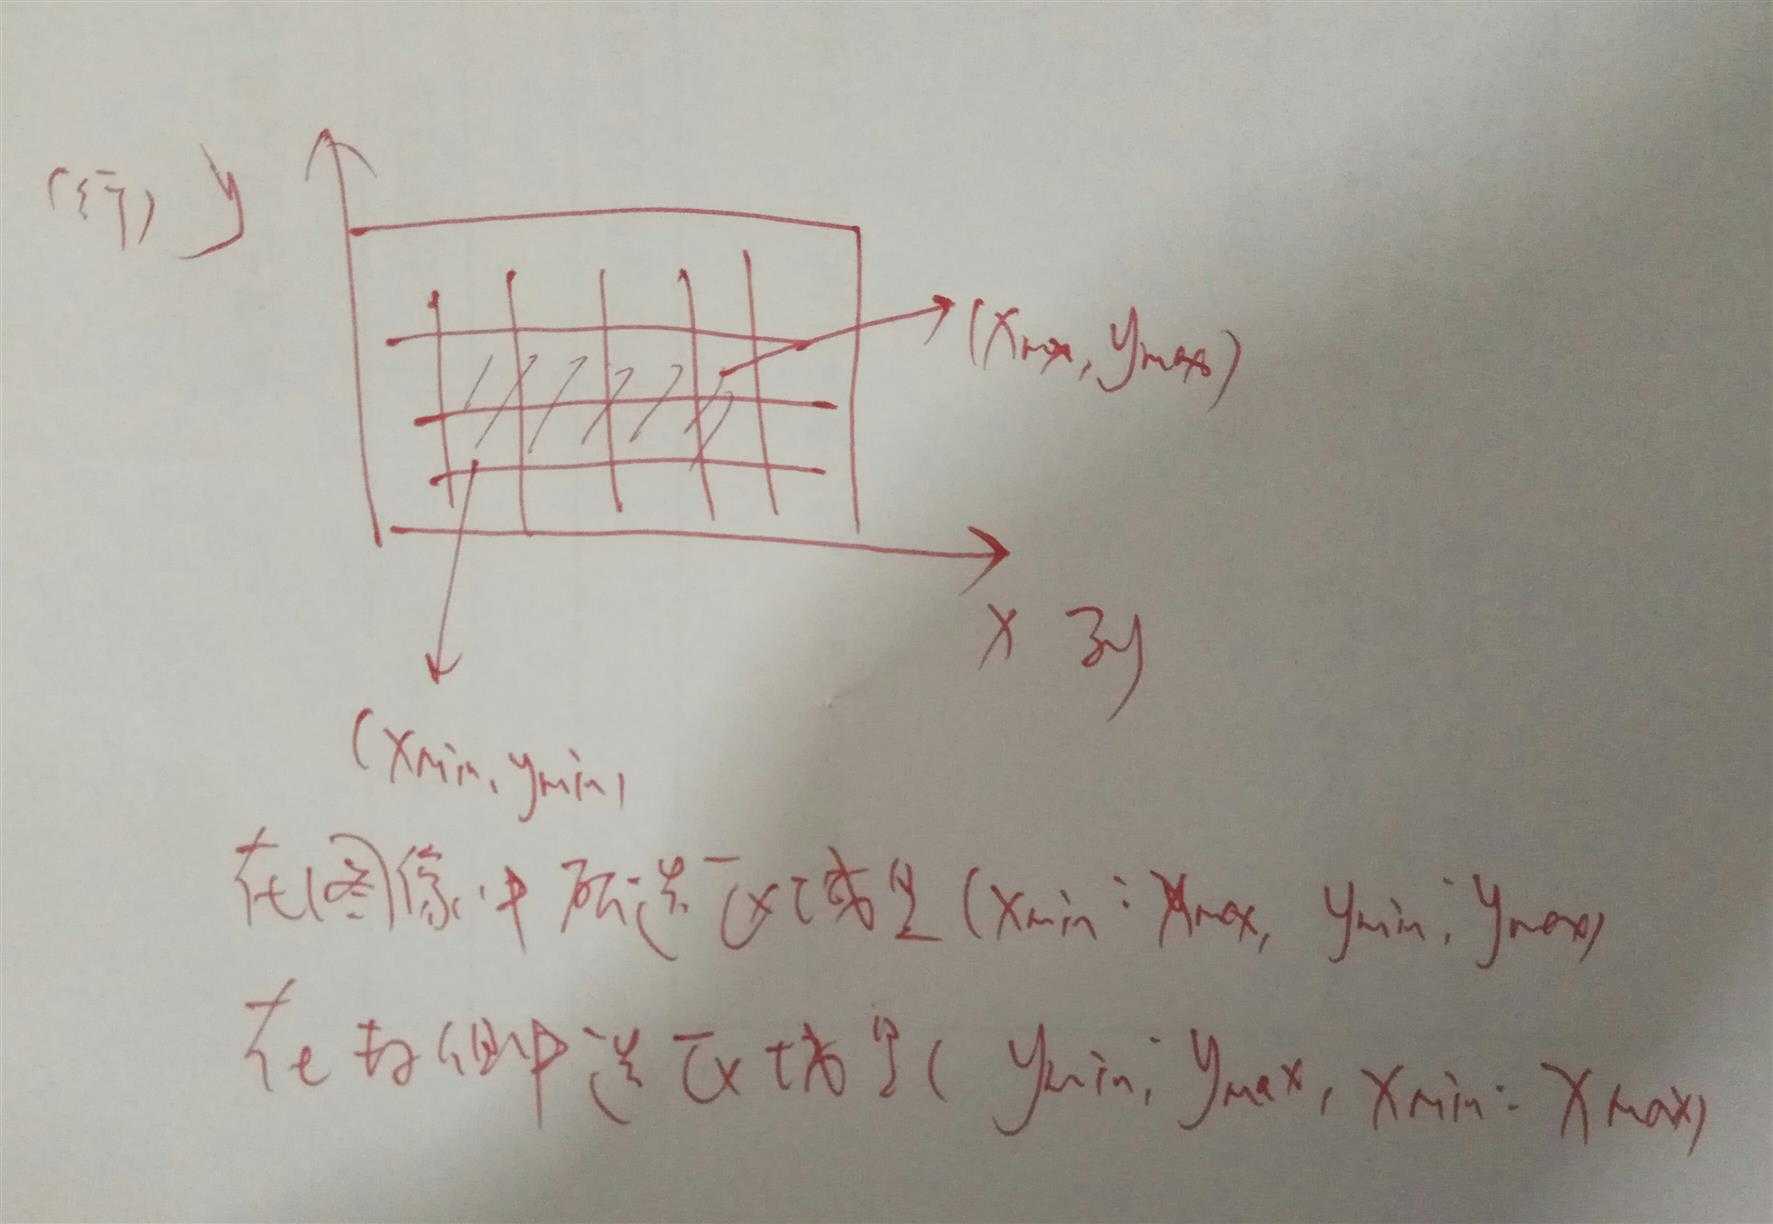 (行) y
(xmax, ymax)
x 列
(xmin, ymin)
在图像中所选区域是(xmin:xmax, ymin:ymax)
在数组中选区域是(ymin:ymax, xmin:xmax)